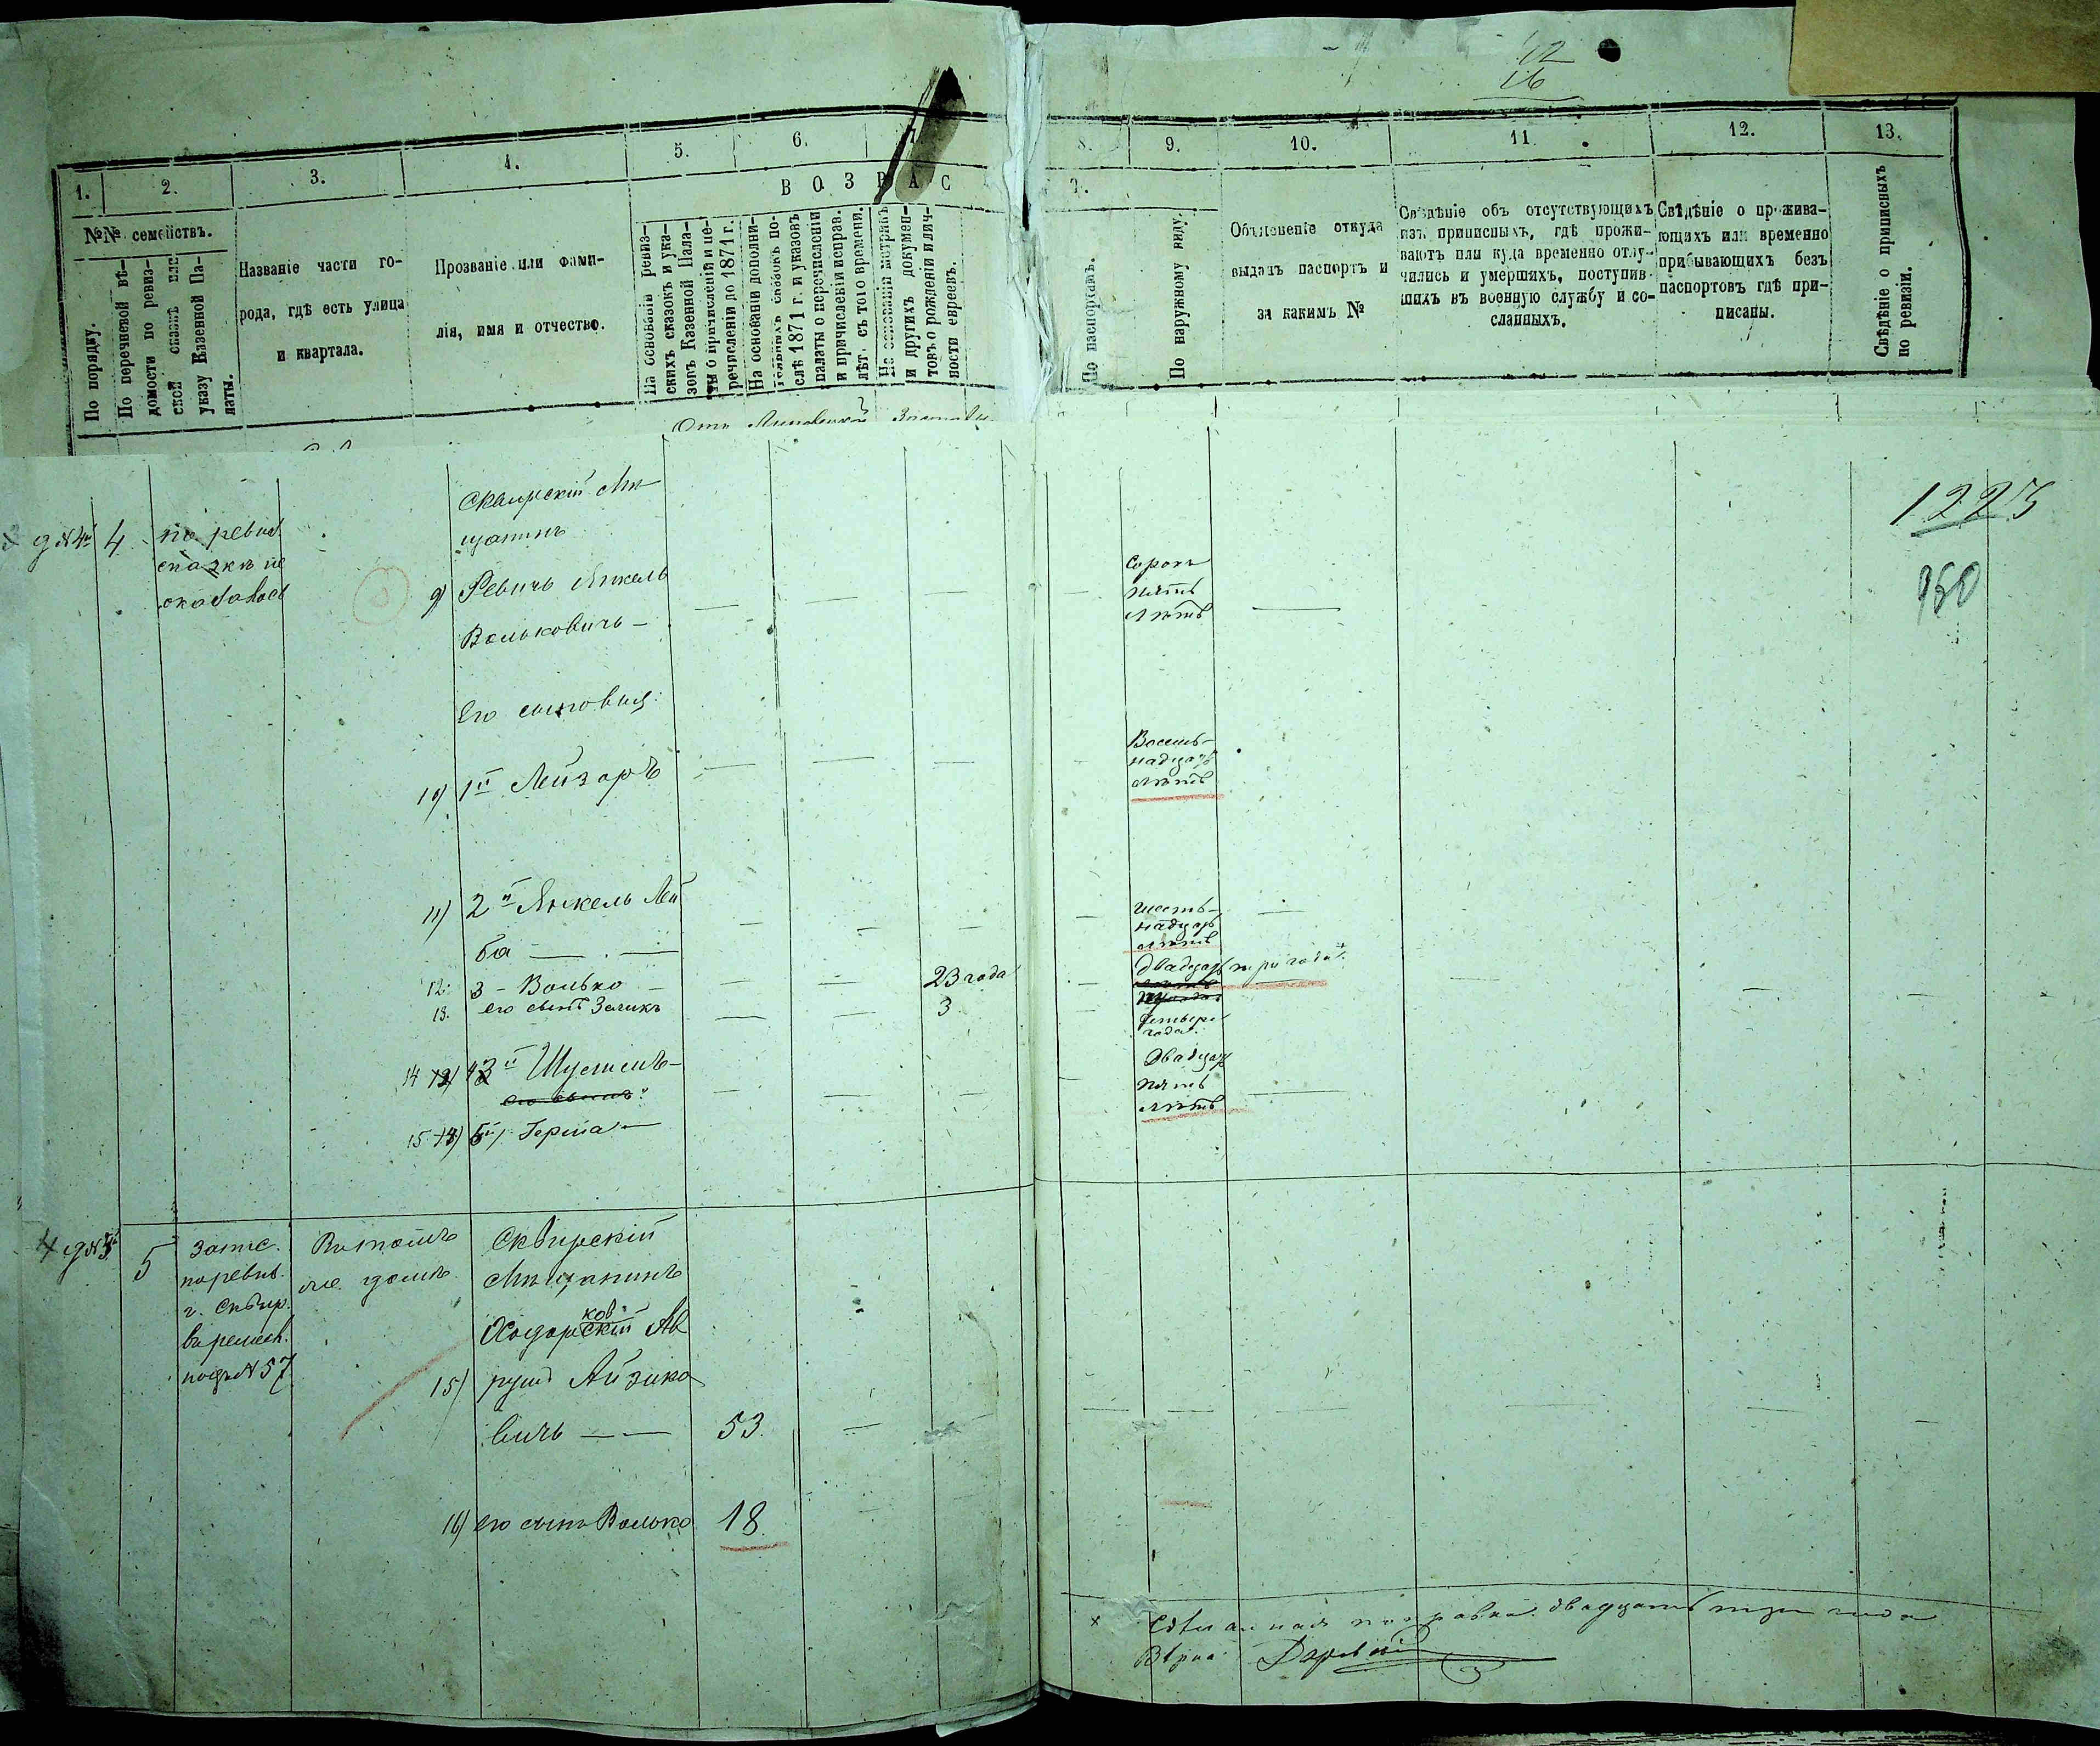 12
16
1.
2.
3.
4.
5.
6.
7
8.
9.
10.
11
12.
13.
ВОЗРАС
Т.
№№ семействъ.
По порядку.
По перечневой вѣ-
домости по ревиз-
ской сказкѣ или
указу Казенной Па-
латы.
Названіе части го-
рода, гдѣ есть улица
и квартала.
Прозваніе или фами-
лія, имя и отчество.
На основаніи ревиз-
скихъ сказокъ и ука-
зовъ Казенной Пала-
ты о причисленіи и пе-
речисленіи до 1871 г.
На основаніи дополни-
тельныхъ сказокъ по-
слѣ 1871 г. и указовъ
палаты о перечисленіи
и причисленіи исправ.
лѣт. съ того времени.
На основаніи метрикъ
и другихъ докумен-
товъ о рожденіи и лич-
ности евреевъ.
По паспортамъ.
По наружному виду.
Объясненіе откуда
выданъ паспортъ и
за какимъ №
Свѣдѣніе объ отсутствующихъ
изъ приписныхъ, гдѣ прожи-
ваютъ или куда временно отлу-
чились и умершихъ, поступив-
шихъ въ военную службу и со-
сланныхъ.
Свѣдѣніе о прожива-
ющихъ или временно
прибывающихъ безъ
паспортовъ гдѣ при-
писаны.
Свѣдѣніе о приписныхъ
по ревизіи.
Отъ
4
по ревиз.
сказкѣ не
оказалось
Сквирскій Мѣ
щанинъ
9) Ревичъ Янкель
Вольковичъ —
Сорокъ
пять
лѣтъ
1225
960
Его сыновья:
10) 1й Лейзоръ
Восемь-
надцать
лѣтъ
11) 2й Янкель Лей
ба —
шесть-
надцать
лѣтъ
12. 3 - Волько - 23 года
Двадцать три года
13. его сынъ Зеликъ 3
Четыре
года.
14 12) 43й Шуемъ -
его сынъ:
Двадцать
пять
лѣтъ
15 13) 5й) Герша —
5
запис.
по ревиз.
г. Сквир.
въ ремесл.
подъ № 57
Въ томъ
же домѣ.
Сквирскій
Мѣщанинъ
ков
Ходорскій Ав
15) румъ Айзико
вичъ — — 53.
16) его сынъ Волько 18.
× Сдѣланная поправка двадцать три года
Вѣрна